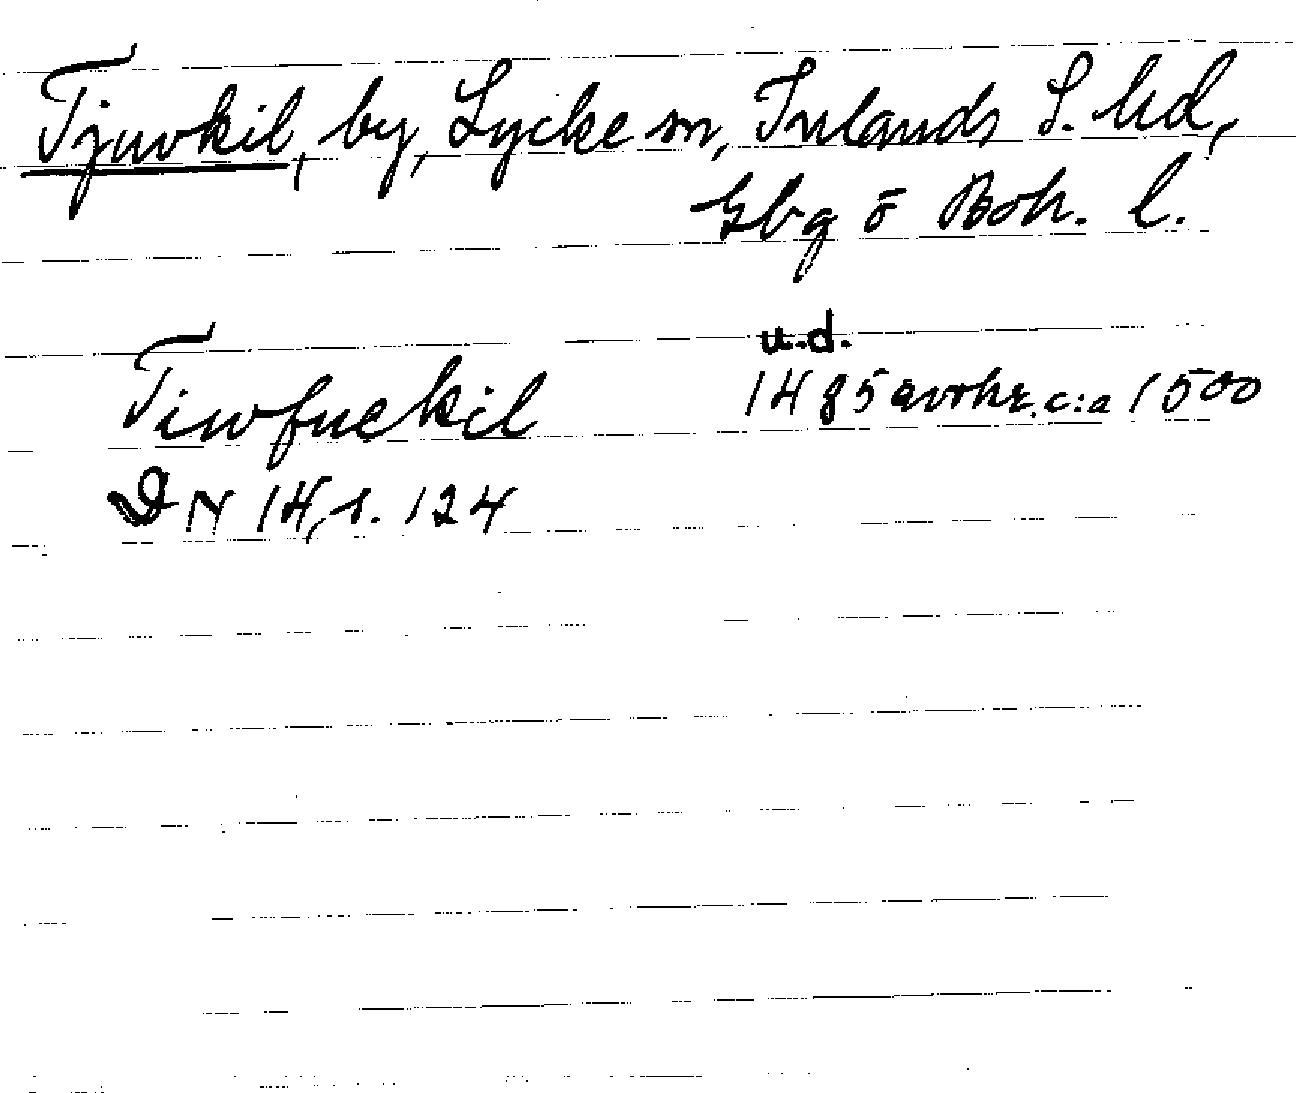 Tjuvkil, by, Lycke sn, Inlands S. hd,
Gbg o Boh. l.
u.d.
Tiwfuekil 1485 avskr. c:a 1500
DN 14, s. 124